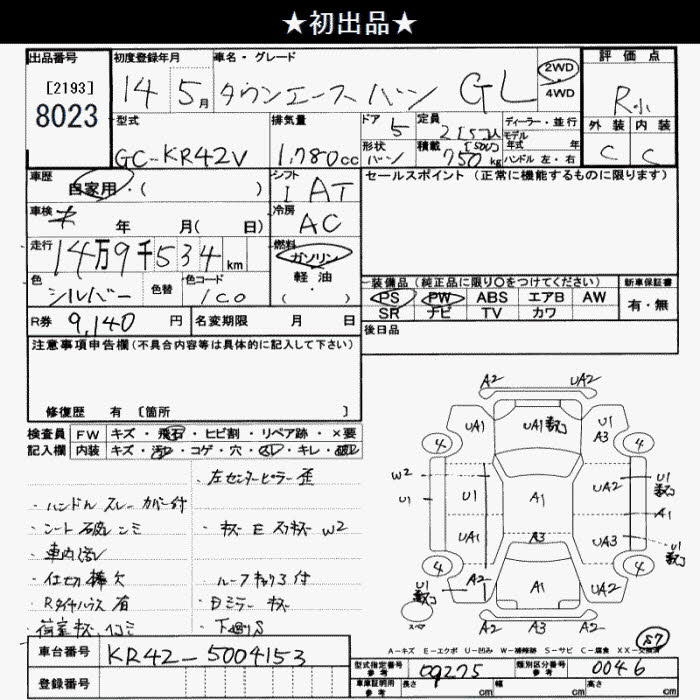 ★初出品★
出品番号
[2193]
8023
初度登録年月
14 5月
車名・グレード
タウンエースバン GL
2WD
4WD
評価点
R
外装 内装
C C
型式
GC-KR42V
排気量
1,780cc
ドア
5
形状
バン
定員
2[5]人
積載
[500]
750kg
ディーラー・並行
モデル
年式 年
ハンドル 左・右
車歴
自家用・( )
シフト
I AT
セールスポイント (正常に機能するものに限ります)
車検
年 月( 日)
冷房
AC
走行
14万9千534km
燃料
ガソリン
軽油
( )
色
シルバー
色替
色コード
1C0
装備品 (純正品に限り〇をつけてください)
PS PW ABS エアB AW
SR ナビ TV カワ
新車保証書
有・無
R券 9,140円
名変期限 月 日
後日品
注意事項申告欄(不具合内容等は具体的に記入して下さい)
修復歴 有 [箇所 ]
検査員 FW キズ・飛石・ヒビ割・リペア跡・×要
記入欄 内装 キズ・汚れ・コゲ・穴・スレ・キレ・破れ
・左センターピラー歪
・ハンドルスレ カバー付
・シート破レシミ
・キズ E W2
・車内汚レ
・仕切棒欠
・ルーフキャリア付
・Rタイヤハウス 有
・Dミラーキズ
・荷室キズ
・下廻りS
A2 UA2
UA1 UA1 U1
A3
4 4
W2 U1
U1 U1 A1 UA2
A1
UA1 A3 UA3 U1
4 4
U1 A2 A1 UA2
スペア A2 A3 A2
57
A-キズ E-エクボ U-凹み W-補修跡 S-サビ C-腐食 XX-交換済
車台番号 KR42-5004153
登録番号
型式指定番号
参考
09275
類別区分番号
参考
0046
車庫証明用
参考
長さ cm 幅 cm 高さ cm